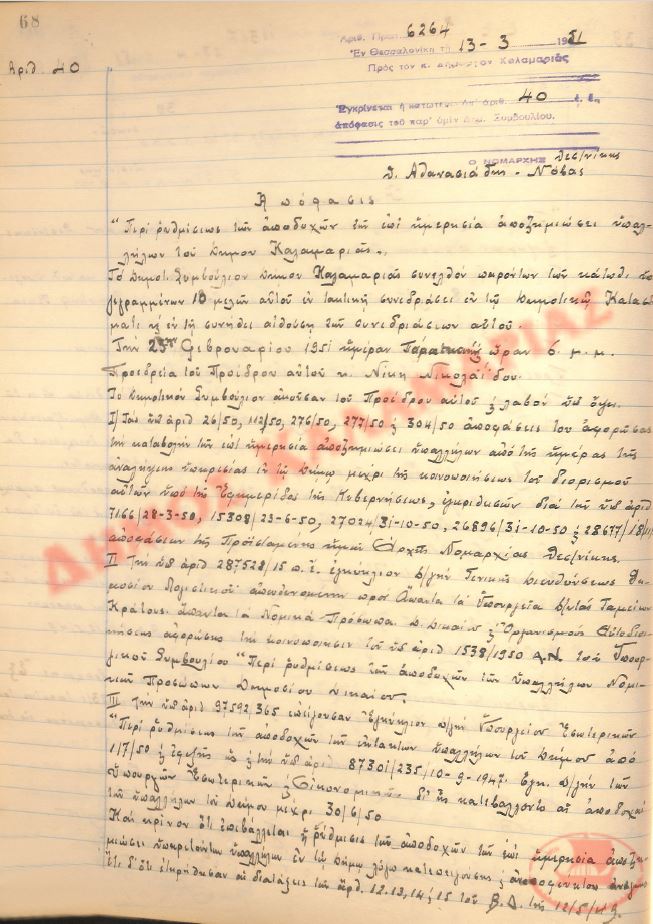 68
Αριθ. Πρωτ. 6264
Ἐν Θεσσαλονίκῃ τῇ 13-3 1951
Αριθ. 40
Πρὸς τὸν κ. Δήμαρχον Καλαμαριᾶς
Ἐγκρίνεται ἡ κατωτέρω ὑπ' ἀριθ. 40 ἐ. ἔ.
ἀπόφασις τοῦ παρ' ὑμῖν Δημ. Συμβουλίου.
Ο ΝΟΜΑΡΧΗΣ Θεσ/νίκης
Ἀθανασιάδης - Νόβας
Ἀπόφασις
"Περὶ ρυθμίσεως τῶν ἀποδοχῶν τῶν ἐπὶ ἡμερησίᾳ ἀποζημιώσει ὑπαλ-
λήλων τοῦ Δήμου Καλαμαριᾶς„
Τὸ Δημοτ. Συμβούλιον Δήμου Καλαμαριᾶς συνελθὸν παρόντων τῶν κάτωθι ὑπο
γεγραμμένων 18 μελῶν αὐτοῦ ἐν τακτικῇ συνεδριάσει ἐν τῷ Δημοτικῷ Κατασ
ματι κ' ἐν τῇ συνήθει αἰθούσῃ τῶν συνεδριάσεων αὐτοῦ.
Τὴν 23ην Φεβρουαρίου 1951 ἡμέραν Παρασκευὴν ὥραν 6 μ.μ.
Προεδρεία τοῦ Προέδρου αὐτοῦ κ. Νίκη Νικολαΐδου.
Τὸ Δημοτικὸν Συμβούλιον ἀκοῦσαν τοῦ Προέδρου αὐτοῦ & λαβὸν ὑπ' ὄψει.
I) Τὰς ὑπ' ἀριθ 26/50, 112/50, 276/50, 277/50 & 304/50 ἀποφάσεις του ἀφορώσας
τὴν καταβολὴν τῶν ἐπὶ ἡμερησία ἀποζημιώσει ὑπαλλήλων ἀπὸ τῆς ἡμέρας τῆς
ἀναλήψεως ὑπηρεσίας ἐν τῷ Δήμῳ μέχρι τῆς κοινοποιήσεως τοῦ διορισμοῦ
αὐτῶν ὑπὸ τῆς Ἐφημερίδος τῆς Κυβερνήσεως, ἐγκριθεισῶν διὰ τῶν ὑπ' ἀριθ
7166/28-3-50, 15308/23-6-50, 27024/31-10-50, 26896/31-10-50 & 28677/18/11
ἀποφάσεων τῆς Προϊσταμένης ἡμῶν Ἀρχῆς Νομαρχίας Θεσ/νίκης.
II Τὴν ὑπ' ἀριθ 287528/15 π.ἔ. ἐγκύκλιον Δ/γὴν Γενικῆς Διευθύνσεως Δη
μοσίου Λογιστικοῦ ἀπευθυνομένην πρὸς Ἅπαντα τὰ Ὑπουργεῖα Δ/ντὰς Ταμείων
Κράτους. Ἅπαντα τὰ Νομικὰ Πρόσωπα Δ. Δικαίου & Ὀργανισμοὺς Αὐτοδιοι-
κήσεως ἀφορῶσαν τὴν κοινοποίησιν τοῦ ὑπ' ἀριθ 1538/1950 Α.Ν. τοῦ Ὑπουρ-
γικοῦ Συμβουλίου "Περὶ ρυθμίσεως τῶν ἀποδοχῶν τῶν ὑπαλλήλων Νομι-
κῶν Προσώπων Δημοσίου Δικαίου".
III Τὴν ὑπ' ἀριθ 97592/365 ἐπείγουσαν Ἐγκύκλιον Δ/γὴν Ὑπουργείου Ἐσωτερικῶν
"Περὶ ρυθμίσεως τῶν ἀποδοχῶν τῶν ἐκτάκτων ὑπαλλήλων τοῦ Δήμου ἀπὸ
1/7/50 & ἐφεξῆς ὡς & τὴν ὑπ' ἀριθ 87301/235/10-9-1947. Ἐγκ. Δ/γὴν τῶν
Ὑπουργῶν Ἐσωτερικῶν & Οἰκονομικῶν δι' ἧς κατεβάλλοντο αἱ ἀποδοχαὶ
τῶν ὑπαλλήλων τοῦ Δήμου μέχρι 30/6/50
Καὶ κρίνον ὅτι ἐπιβάλλεται ἡ ρύθμισις τῶν ἀποδοχῶν τῶν ἐπὶ ἡμερησία ἀποζη-
μιώσει ὑπηρετούντων ὑπαλλήλων ἐν τῷ Δήμῳ λόγῳ κατεπειγούσης & ἀναποφεύκτου ἀνάγκης
ἔτι δ' ὅτι ἐτηρήθησαν αἱ διατάξεις τῶν ἄρθ. 12, 13, 14 & 15 τοῦ Β.Δ. τῆς 12/5/49
ΔΗΜΟΣ ΚΑΛΑΜΑΡΙΑΣ